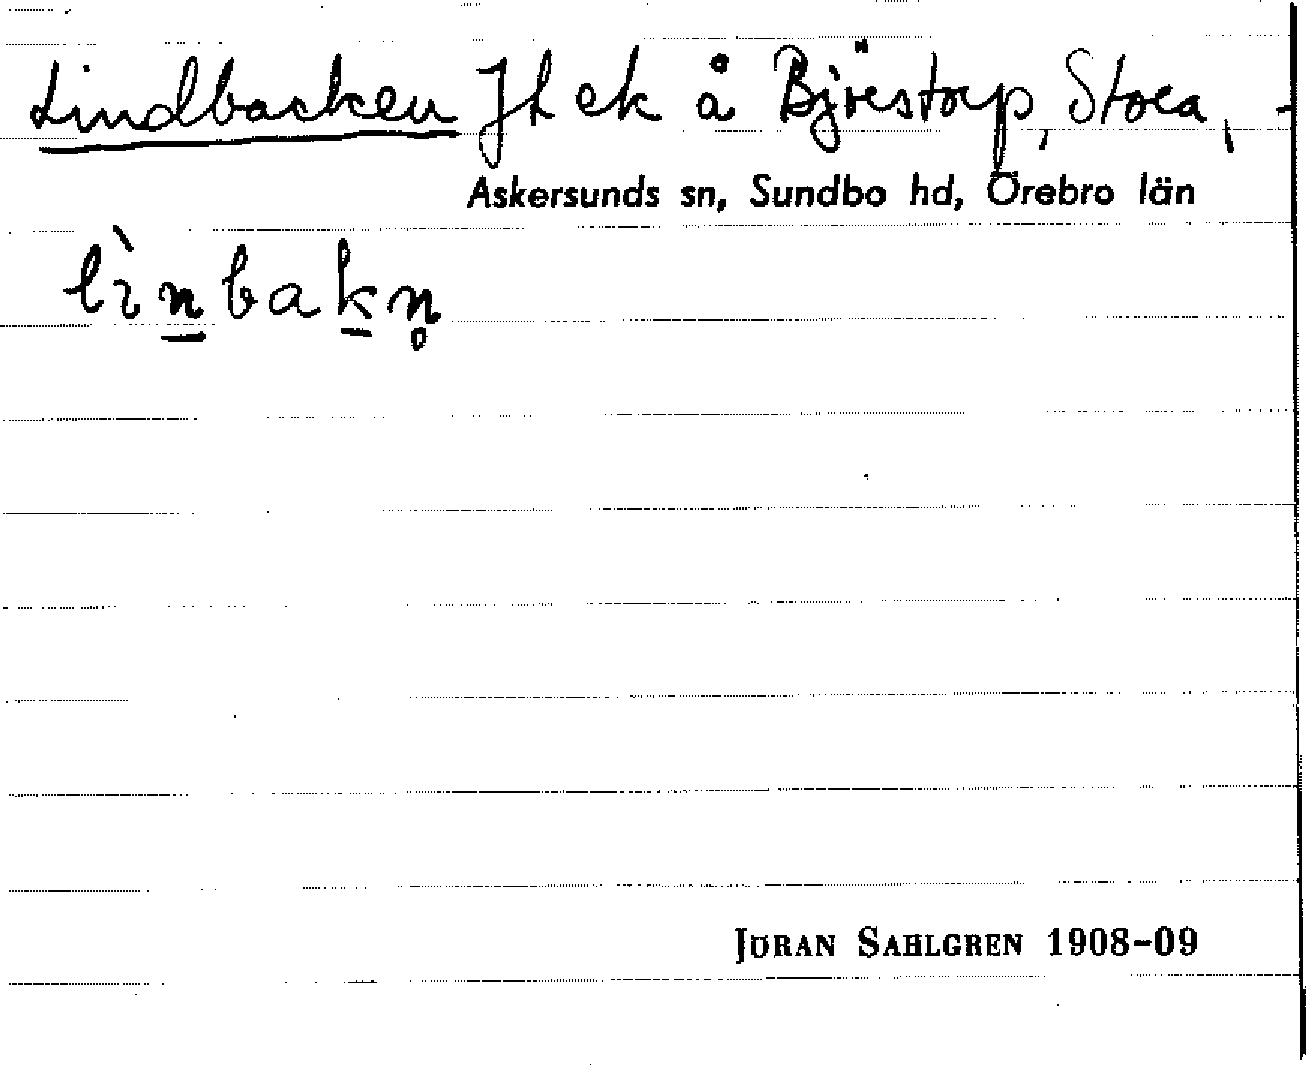 Lindbacken JL ek å Björstorp, Stora, -
Askersunds sn, Sundbo hd, Örebro län
lìnbakn̥
JÖRAN SAHLGREN 1908-09